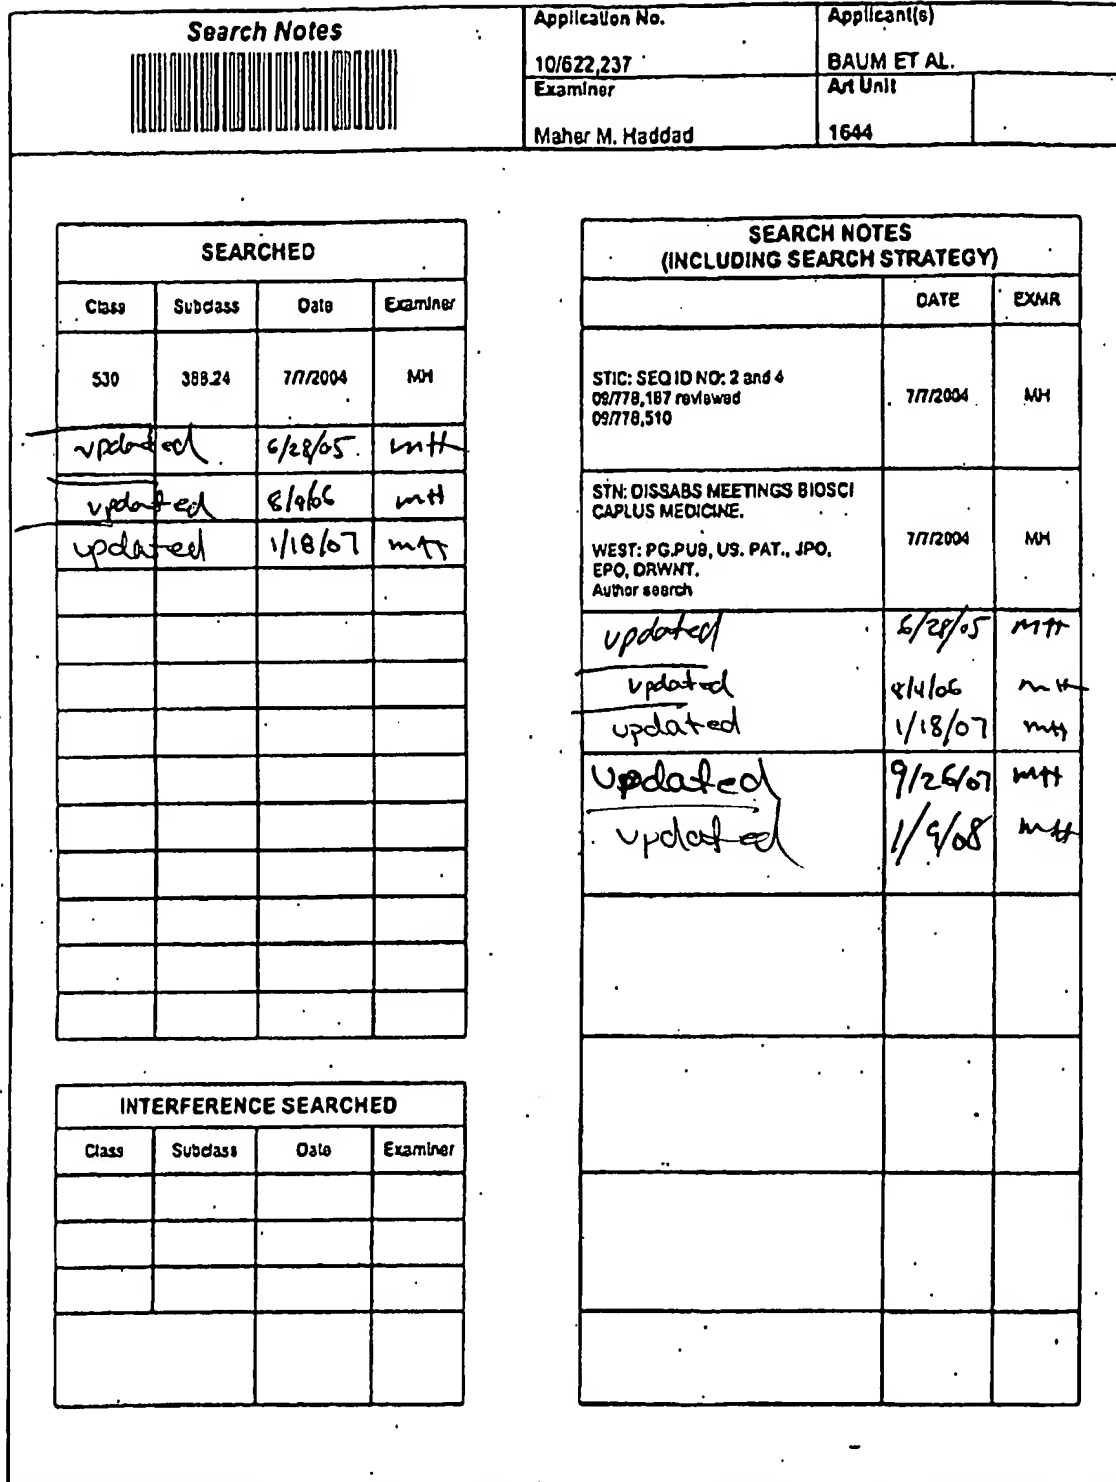 Search Notes
Application No.
10/622,237
Applicant(s)
BAUM ET AL.
Examiner
Maher M. Haddad
Art Unit
1644
SEARCHED
Class Subclass Date Examiner
530 388.24 7/7/2004 MH
updated 6/28/05 MH
updated 8/4/06 MH
updated 1/18/07 MH
INTERFERENCE SEARCHED
Class Subclass Date Examiner
SEARCH NOTES
(INCLUDING SEARCH STRATEGY)
DATE EXMR
STIC: SEQ ID NO: 2 and 4
09/778,187 reviewed
09/778,510
7/7/2004 MH
STN: DISSABS MEETINGS BIOSCI
CAPLUS MEDICINE.
WEST: PG.PUB, US. PAT., JPO,
EPO, DRWNT.
Author search
7/7/2004 MH
updated 6/28/05 MH
updated 8/4/06 MH
updated 1/18/07 MH
updated 9/26/07 MH
updated 1/9/08 MH